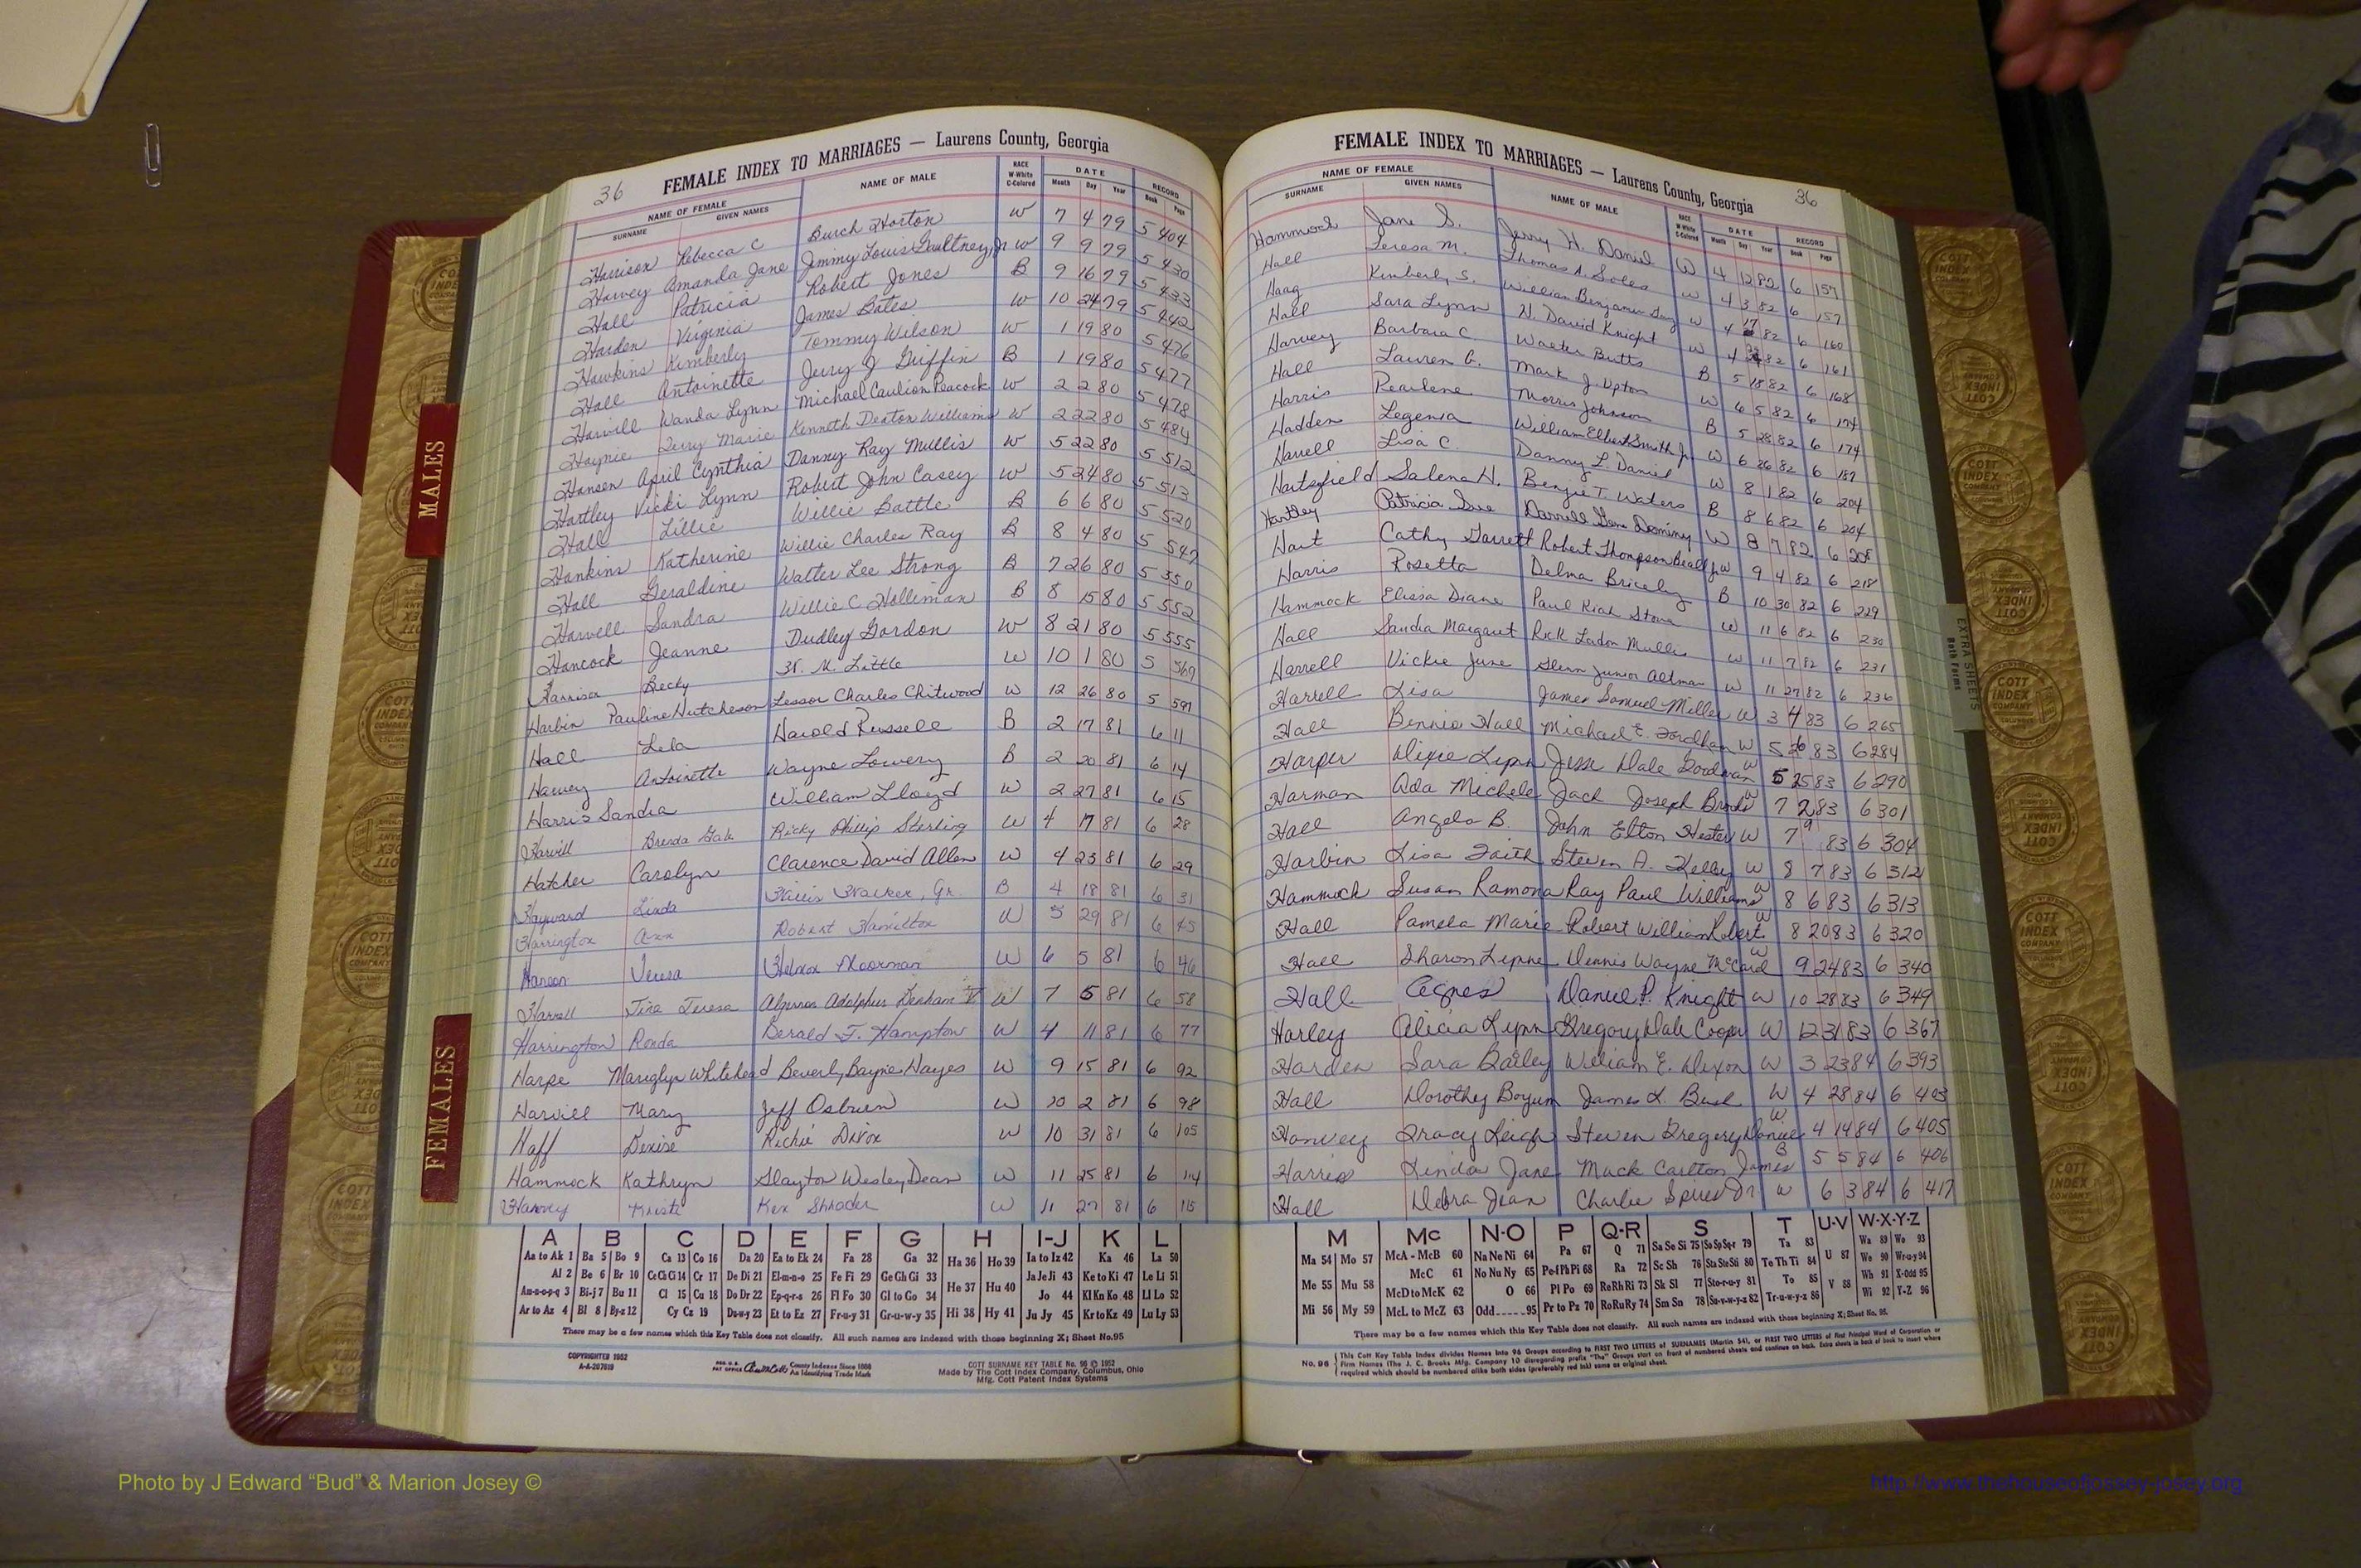 36
FEMALE INDEX TO MARRIAGES — Laurens County, Georgia
NAME OF FEMALE NAME OF MALE RACE W-White C-Colored DATE RECORD
SURNAME GIVEN NAMES Month Day Year Book Page
Harrison Rebecca C Burch Horton W 7 4 79 5 404
Harvey Amanda Jane Jimmy Louis Gaultney, Jr W 9 9 79 5 430
Hall Patricia Robert Jones B 9 16 79 5 433
Harden Virginia James Bates W 10 24 79 5 442
Hawkins Kimberly Tommy Wilson W 1 19 80 5 476
Hall Antoinette Jerry J Griffin B 1 19 80 5 477
Harvill Wanda Lynn Michael Caulion Peacock W 2 2 80 5 478
Haynie Terry Marie Kenneth Deaton Williams W 2 22 80 5 484
Hansen April Cynthia Danny Ray Mullis W 5 22 80 5 512
Hartley Vicki Lynn Robert John Casey W 5 24 80 5 513
Hall Lillie Willie Battle B 6 6 80 5 520
Hankins Katherine Willie Charles Ray B 8 4 80 5 547
Hall Geraldine Walter Lee Strong B 7 26 80 5 550
Harvell Sandra Willie C Holliman B 8 15 80 5 552
Hancock Jeanne Dudley Gordon W 8 21 80 5 555
Harrison Becky W. M. Little W 10 1 80 5 569
Harbin Pauline Hutcheson Lessor Charles Chitwood W 12 26 80 5 591
Hall Lela Harold Russell B 2 17 81 6 11
Harvey Antoinette Wayne Lowery B 2 20 81 6 14
Harris Sandra William Lloyd W 2 27 81 6 15
Harvill Brenda Gale Ricky Phillip Sterling W 4 17 81 6 28
Hatcher Carolyn Clarence David Allen W 4 23 81 6 29
Hayward Linda Willis Walker, Jr. B 4 18 81 6 31
Harrington Ann Robert Hamilton W 5 29 81 6 45
Teresa Moorman W 6 5 81 6 46
Harrell Tina Teresa Adolphus Denham W 7 5 81 6 58
Harrington Ronda Gerald F. Hampton W 4 11 81 6 77
Harpe Marylyn Whitehead Beverly Bayne Hayes W 9 15 81 6 92
Harvill Mary Jeff Osburn W 10 2 81 6 98
Haff Denise Richie Dixon W 10 31 81 6 105
Hammock Kathryn Slayton Wesley Dean W 11 25 81 6 114
Harvey Kristi Ken Shrader W 11 27 81 6 115
A B C D E F G H I-J K L
Aa to Ak 1 Ba 5 Bo 9 Ca 13 Co 16 Da 20 Ea to Ek 24 Fa 28 Ga 32 Ha 36 Ho 39 Ia to Iz 42 Ka 46 La 50
Al 2 Be 6 Br 10 CeChCi 14 Cr 17 De Di 21 El-m-n-o 25 Fe Fi 29 Ge Gh Gi 33 He 37 Hu 40 JaJeJi 43 Ke to Ki 47 Le Li 51
Am-n-o-p-q 3 Bi-j 7 Bu 11 Cl 15 Cu 18 Do Dr 22 Ep-q-r-s 26 Fl Fo 30 Gl to Go 34 Jo 44 Kl Kn Ko 48 Ll Lo 52
Ar to Az 4 Bl 8 By-z 12 Cy Cz 19 Du-w-y 23 Et to Ez 27 Fr-u-y 31 Gr-u-w-y 35 Hi 38 Hy 41 Ju Jy 45 Kr to Kz 49 Lu Ly 53
There may be a few names which this Key Table does not classify. All such names are indexed with those beginning X; Sheet No. 95
COPYRIGHTED 1952
A-A-207619
REG. U.S. PAT OFFICE County Indexes Since 1888
An Identifying Trade Mark
COTT SURNAME KEY TABLE No. 96 © 1952
Made by The Cott Index Company, Columbus, Ohio
Mfg. Cott Patent Index Systems
FEMALE INDEX TO MARRIAGES — Laurens County, Georgia
36
NAME OF FEMALE NAME OF MALE RACE W-White C-Colored DATE RECORD
SURNAME GIVEN NAMES Month Day Year Book Page
Hammock Jane S. Jerry H. Daniel W 4 12 82 6 157
Hall Teresa M. Thomas A. Soles W 4 3 82 6 157
Haag Kimberly S. William Benjamin W 4 17 82 6 160
Hall Sara Lynn N. David Knight W 4 82 6 161
Harvey Barbara C. Walter Butts B 5 15 82 6 168
Hall Lauren G. Mark J. Upton W 6 5 82 6 174
Harris Pearlene Morris Johnson B 5 28 82 6 174
Hadden Legenia William Elbert Smith Jr W 6 26 82 6 187
Harrell Lisa C. Danny L. Daniel W 8 1 82 6 204
Hartsfield Salena H. Benjie T. Waters B 8 6 82 6 204
Hartley Patricia Sue Darrell Gene Dominy W 8 7 82 6 205
Hart Cathy Garrett Robert Thompson Beall Jr W 9 4 82 6 218
Harris Rosetta Delma Bricely B 10 30 82 6 229
Hammock Elissa Diane Paul Rick Stova W 11 6 82 6 230
Hall Sandra Margaret Rick Ladon Mullis W 11 7 82 6 231
Harrell Vickie June Glenn Junior Altman W 11 27 82 6 236
Harrell Lisa James Samuel Miller W 3 4 83 6 265
Hall Bennie Hall Michael E. Fordham W 5 20 83 6 284
Harper Dixie Lynn Jesse Dale Goodman W 5 25 83 6 290
Harman Ada Michele Jack Joseph W 7 2 83 6 301
Hall Angela B. John Elton Hester W 7 9 83 6 304
Harbin Lisa Faith Steven A. Kelley W 8 7 83 6 312
Hammock Susan Ramona Ray Paul Williams W 8 6 83 6 313
Hall Pamela Marie Robert William Robert W 8 20 83 6 320
Hall Sharon Lynne Dennis Wayne McCard W 9 24 83 6 340
Hall Agnes Daniel P. Knight W 10 28 83 6 349
Harley Alicia Lynn Gregory Dale Cooper W 12 31 83 6 367
Harden Sara Bailey William E. Dixon W 3 23 84 6 393
Hall Dorothy Boyum James L. Bush W 4 28 84 6 403
Hanvey Tracy Leigh Steven Gregory Daniel W 4 14 84 6 405
Harris Linda Jane Mack Carlton James B 5 5 84 6 406
Hall Debra Jean Charlie Spires Jr W 6 3 84 6 417
M Mc N-O P Q-R S T U-V W-X-Y-Z
Ma 54 Mo 57 McA - McB 60 Na Ne Ni 64 Pa 67 Q 71 Sa Se Si 75 So Sp Sq-r 79 Ta 83 U 87 Wa 89 Wo 93
Me 55 Mu 58 McC 61 No Nu Ny 65 Pe-f Ph Pi 68 Ra 72 Sc Sh 76 Sta Ste Sti 80 Te Th Ti 84 We 90 Wr-u-y 94
McD to McK 62 O 66 Pl Po 69 Re Rh Ri 73 Sk Sl 77 Sto-r-u-y 81 To 85 V 88 Wh 91 X-Odd 95
Mi 56 My 59 McL to McZ 63 Odd.....95 Pr to Pz 70 Ro Ru Ry 74 Sm Sn 78 Su-v-w-y-z 82 Tr-u-w-y-z 86 Wi 92 Y-Z 96
There may be a few names which this Key Table does not classify. All such names are indexed with those beginning X; Sheet No. 95.
No. 96 This Cott Key Table Index divides Names into 96 Groups according to FIRST TWO LETTERS of SURNAMES (Martin 54), or FIRST TWO LETTERS of First Principal Word of Corporation or
Firm Names (The J. C. Brooks Mfg. Company 10 disregarding prefix "The" Groups start on front of numbered sheets and continue on back. Extra sheets in back of book to insert where
required which should be numbered alike both sides (preferably red ink) same as original sheet.
MALES
FEMALES
EXTRA SHEETS
Both Forms
COTT INDEX COMPANY
Photo by J Edward “Bud” & Marion Josey ©
http://www.thehouseofjossey-josey.org